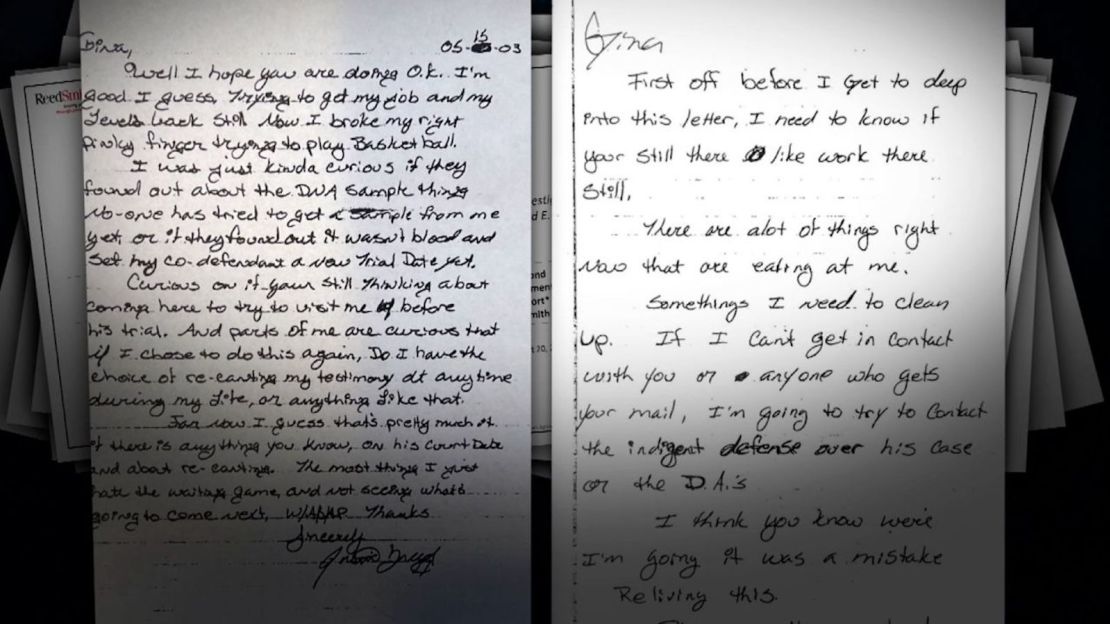 ReedSmi
Gina,
05-15-03
Well I hope you are doing O.K.. I'm
good I guess, Trying to get my job and my
Levels back still. Now I broke my right
pinky finger trying to play Basket ball.
I was just kinda curious if they
found out about the DNA sample thing
No-one has tried to get a sample from me
yet, or if they found out it wasn't blood and
set my co-defendant a New Trial Date yet.
Curious on if your still thinking about
coming here to try to visit me before
his trial. And parts of me are curious that
if I chose to do this again, Do I have the
choice of re-canting my testimony at anytime
during my life, or anything like that.
For now I guess that's pretty much it.
if there is anything you know, on his Court Date
and about re-canting. The most thing I just
hate the waiting game, and not seeing what's
going to come next, Thanks
Sincerely
Gina
First off before I get to deep
into this letter, I need to know if
your still there like work there
still,
There are alot of things right
Now that are eating at me.
Somethings I need to clean
up. If I Can't get in contact
with you or anyone who gets
your mail, I'm going to try to contact
the indigent defense over his case
or the D.A.'s
I think you know were
I'm going it was a mistake
Reliving this.